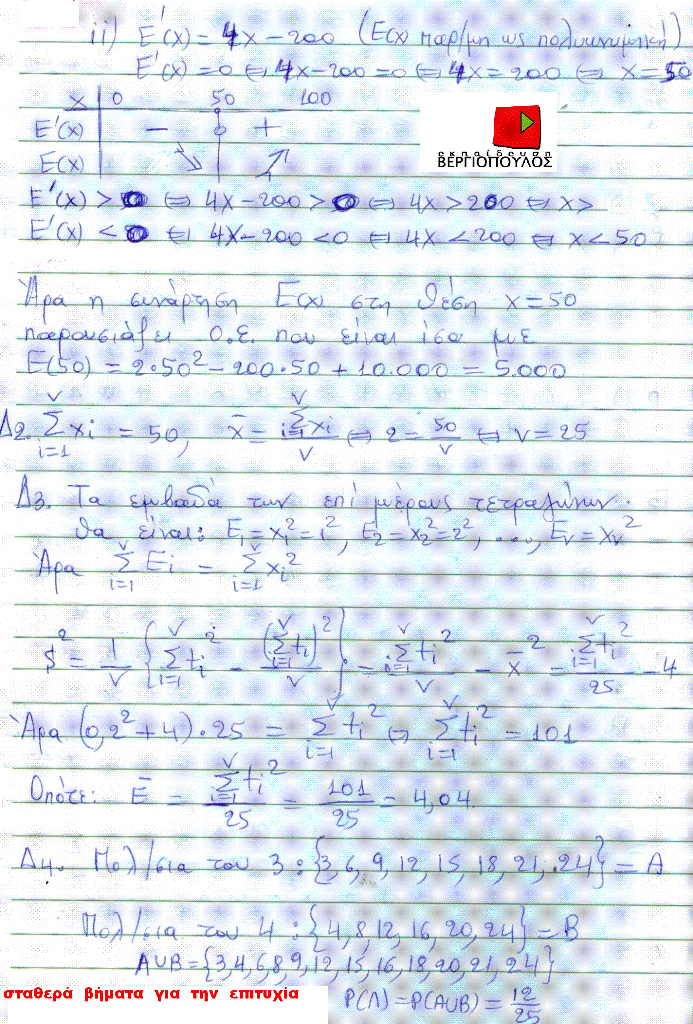 ii) E'(x) = 4x - 200 (E(x) παρ/μη ως πολυωνυμική)
E'(x) = 0 ⇔ 4x - 200 = 0 ⇔ 4x = 200 ⇔ x = 50
x 0 50 100
E'(x) - 0 +
E(x) ↘ ↗
εκπαίδευση
ΒΕΡΓΙΟΠΟΥΛΟΣ
E'(x) > 0 ⇔ 4x - 200 > 0 ⇔ 4x > 200 ⇔ x >
E'(x) < 0 ⇔ 4x - 200 < 0 ⇔ 4x < 200 ⇔ x < 50
Άρα η συνάρτηση E(x) στη θέση x = 50
παρουσιάζει Ο.Ε. που είναι ίσο με
E(50) = 2·50² - 200·50 + 10.000 = 5.000
Δ2. Σ_{i=1}^{ν} xi = 50, x̄ = Σ_{i=1}^{ν} xi / ν ⇔ 2 = 50/ν ⇔ ν = 25
Δ3. Τα εμβαδά των επί μέρους τετραγώνων.
θα είναι: E₁ = x₁² = 1², E₂ = x₂² = 2², ..., Eν = xν²
Άρα Σ_{i=1}^{ν} Ei = Σ_{i=1}^{ν} xi²
s² = 1/ν {Σ_{i=1}^{ν} ti² - (Σ_{i=1}^{ν} ti)²/ν} = Σ_{i=1}^{ν} ti²/ν - x̄² = Σ_{i=1}^{ν} ti²/25 - 4
Άρα (0,2² + 4)·25 = Σ_{i=1}^{ν} ti² ⇔ Σ_{i=1}^{ν} ti² = 101
Οπότε: Ē = Σ_{i=1}^{ν} ti²/25 = 101/25 = 4,04
Δ4. Πολ/σια του 3: {3, 6, 9, 12, 15, 18, 21, 24} = A
Πολ/σια του 4: {4, 8, 12, 16, 20, 24} = B
A∪B = {3, 4, 6, 8, 9, 12, 15, 16, 18, 20, 21, 24}
P(Λ) = P(A∪B) = 12/25
σταθερά βήματα για την επιτυχία